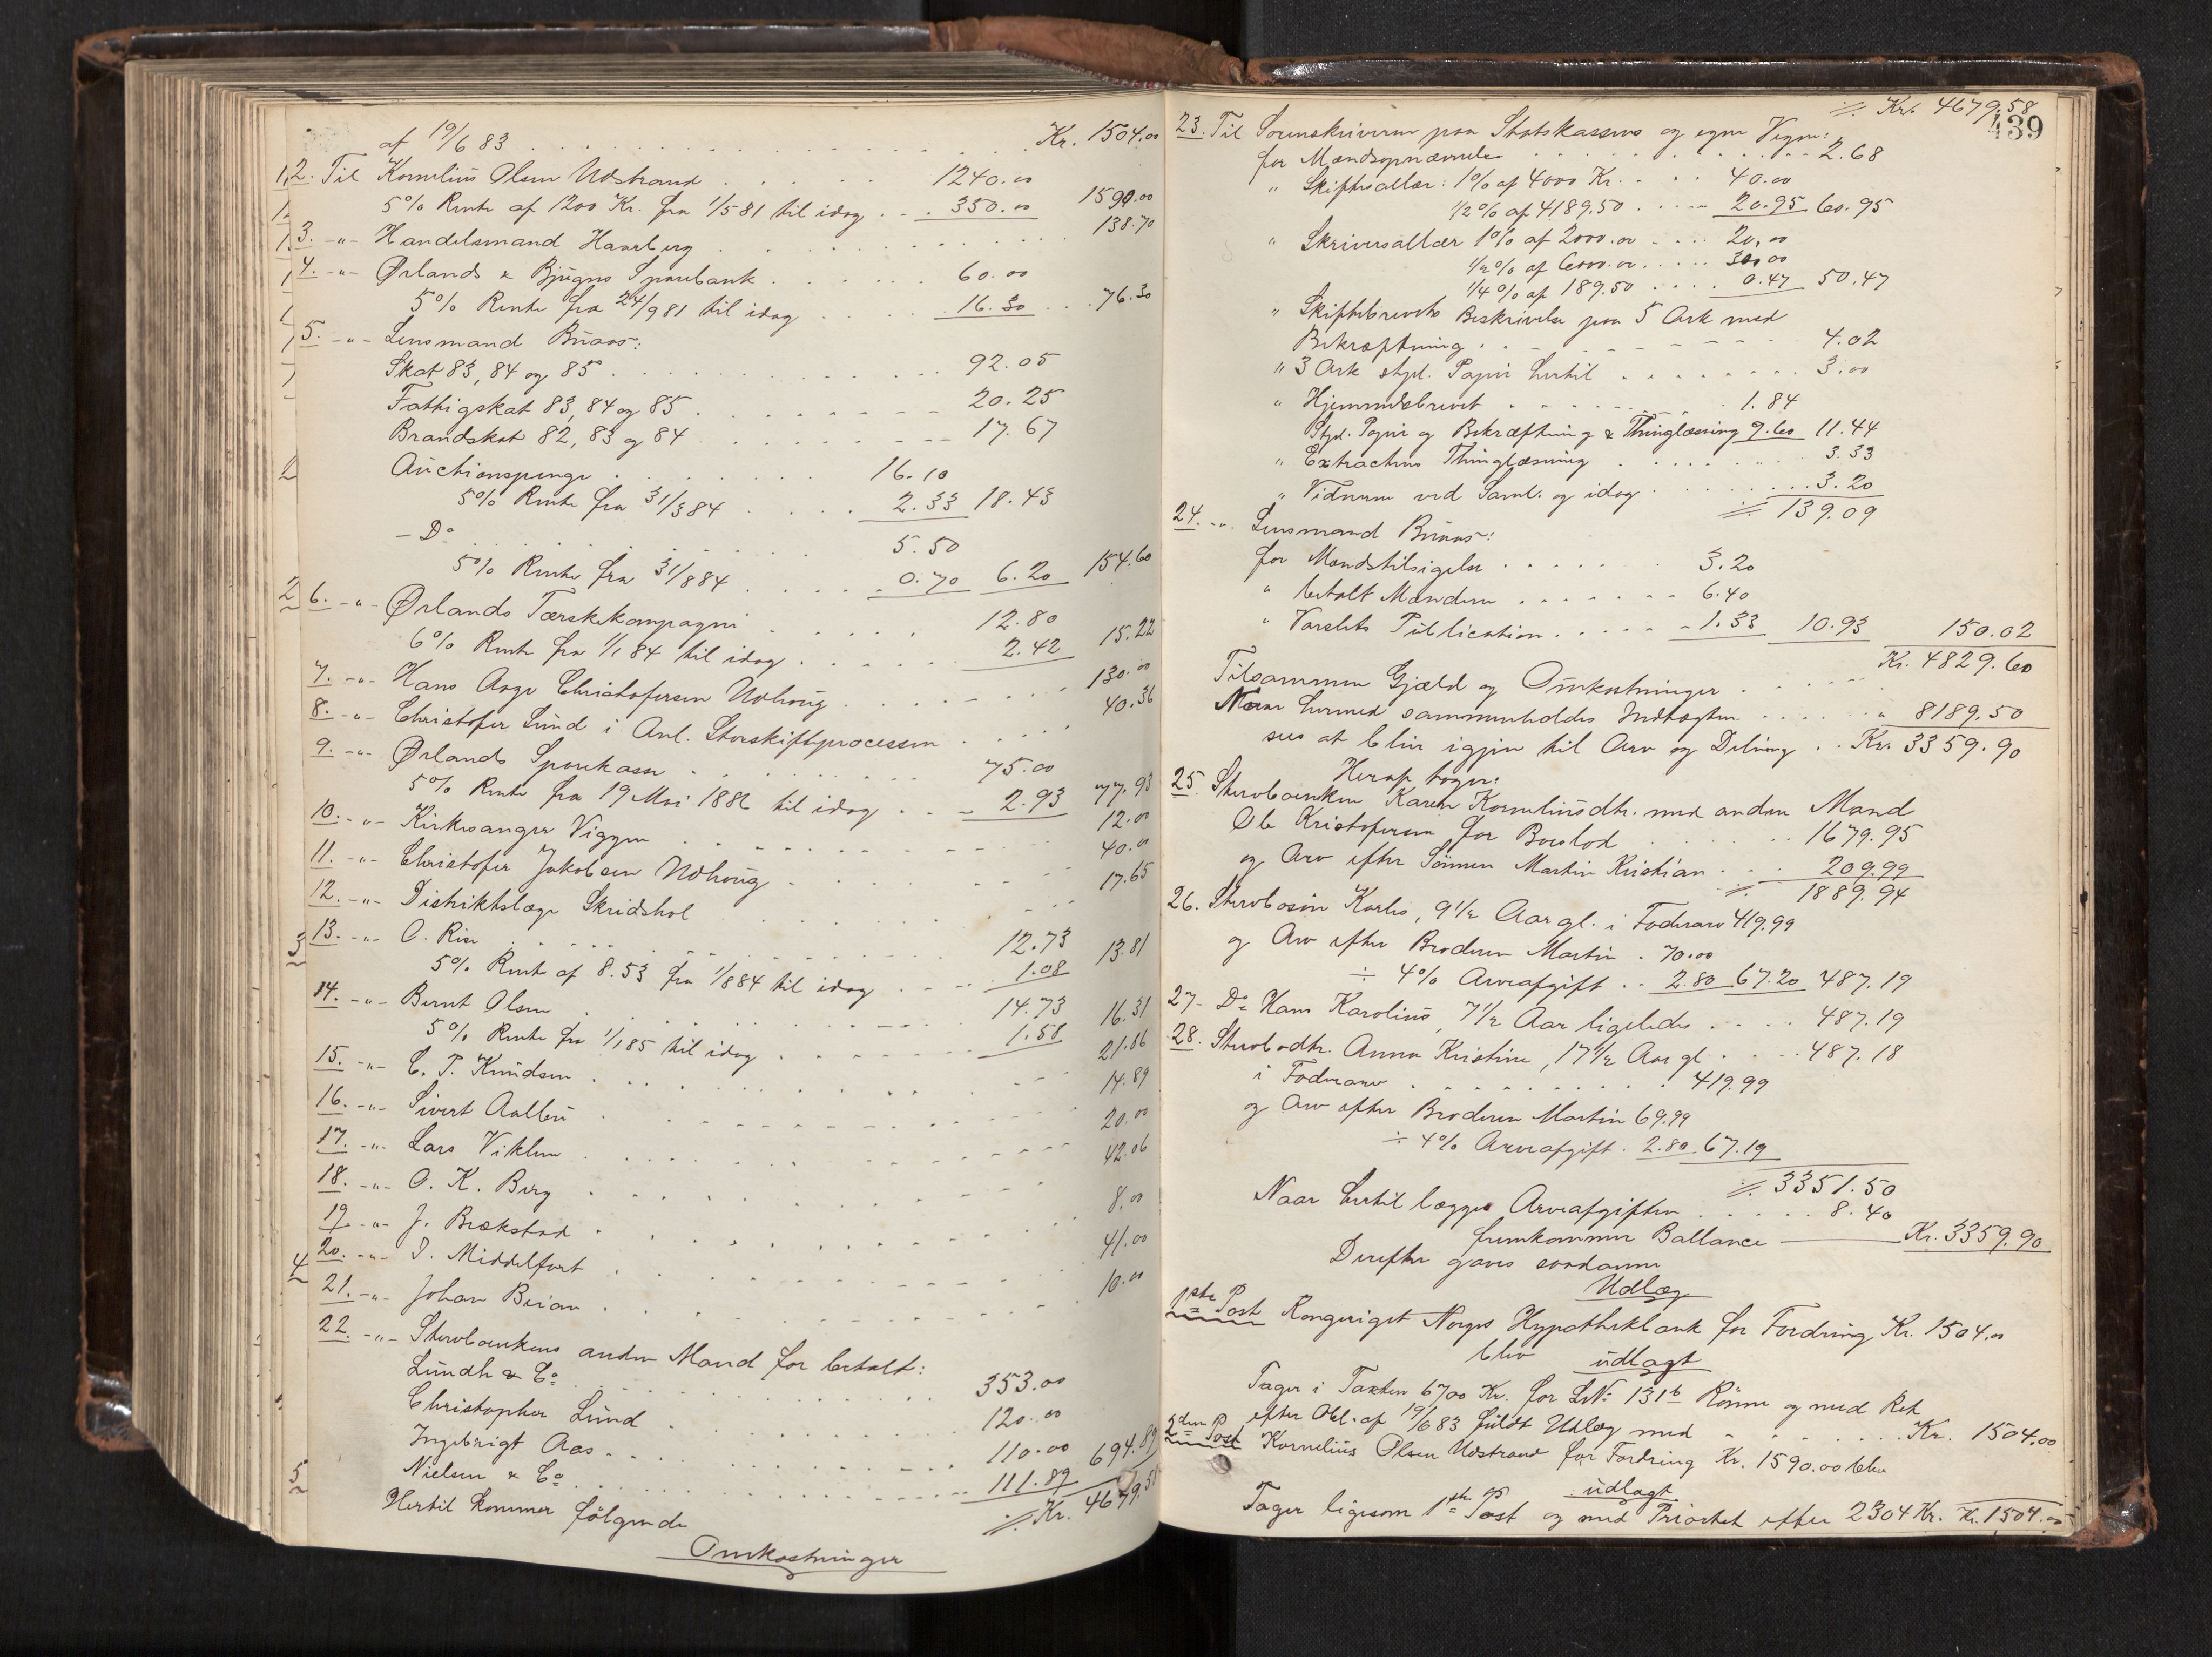 af 19/6 83 . . . Kr. 1504.00
2. Til Kornelius Olsen Udstrand . . . 1240.00
5% Rente af 1200 Kr. fra 1/5 81 til idag . . . 350.00 1590.00
3. -"- Handelsmand Haarberg . . . 138.70
4. -"- Ørlands & Bjugns Sparebank . . . 60.00
5% Rente fra 24/9 81 til idag . . . 16.30 . . 76.30
5. -"- Lensmand Buaas:
Skat 83, 84 og 85 . . . 92.05
Fattigskat 83, 84 og 85 . . . 20.25
Brandskat 82, 83 og 84 . . . 17.67
Auctionspenge . . . 16.10
5% Rente fra 31/3 84 . . . 2.33 18.43
- Do . . . 5.50
5% Rente fra 31/8 84 . . . 0.70 6.20 154.60
6. -"- Ørlands Tærskekompagni . . . 12.80
6% Rente fra 1/1 84 til idag . . . 2.42 15.22
7. -"- Hans Aage Christofersen Udhoug . . . 130.00
8. -"- Christofer Lund i Anl. Storskifteprocessen . . . 40.36
9. -"- Ørlands Sparekasse . . . 75.00
5% Rente fra 19 Mai 1886 til idag . . . 2.93 77.93
10. -"- Kirkesanger Viggen . . . 12.00
11. -"- Christofer Jakobsen Udhoug . . . 40.00
12. -"- Distriktslæge Skridshol . . . 17.65
13. -"- O. Rise . . . 12.73
5% Rente af 8.53 fra 1/8 84 til idag . . . 1.08 13.81
14. -"- Bernt Olsen . . . 14.73
5% Rente fra 1/1 85 til idag . . . 1.58 16.31
15. -"- C. P. Knudsen . . . 21.86
16. -"- Sivert Aalbu . . . 14.89
17. -"- Lars Viklem . . . 20.00
18. -"- O. K. Berg . . . 42.06
19. -"- J. Brækstad . . . 8.00
20. -"- I. Middelfart . . . 41.00
21. -"- Johan Beian . . . 10.00
22. -"- Stervboenkens anden Mand for betalt:
Lundh & Co . . . 353.00
Christopher Lund . . . 120.00
Ingebrigt Aas . . . 110.00 694.89
Nielsen & Co . . . 111.89
Hertil kommer følgende ./. Kr. 4679.5
Omkostninger
./. Kr. 4679,58
439
23. Til Sorenskriveren paa Statskassens og egne Vegne:
for Mændsopnævnelse . . . 2.68
" Skiftesallær: 1% af 4000 Kr. . . . 40.00
1/2% af 4189.50 . . . 20.95 60.95
" Skriversallær 1% af 2000.00 . . . 20,00
1/2% af 6000.00 . . . 30.00
1/4% af 189.50 . . . 0.47 50.47
" Skiftebrevets Beskrivelse paa 5 Ark med
Bekræftning . . . 4.02
" 3 Ark stpl. Papir hertil . . . 3.00
" Hjemmelsbrevet . . . 1.84
Stpl. Papir og Bekræftning & Thinglæsning 9.60 11.44
" Extractens Thinglæsning . . . 3.33
" Vidnerne ved Saml. og idag . . . 3.20
./. 139.09
24. -"- Lensmand Buaas:
for Mændstilsigelse . . . 3.20
" betalt Mændene . . . 6.40
" Varslets Publication . . . 1.33 10.93 150.02
Tilsammen Gjæld og Omkostninger . . . Kr. 4829.60
Naar hermed sammenholdes Indtægten . . . " 8189.50
sees at blive igjen til Arv og Deling . . Kr. 3359.90
Heraf tager:
25. Stervboenken Karen Korneliusdtr. med anden Mand
Ole Kristofersen for Boeslod . . . 1679.95
og Arv efter Sønnen Martin Kristian . . . 209.99
./. 1889.94
26. Stervbosøn Karles, 9 1/2 Aar gl. i Faderarv 419.99
og Arv efter Broderen Martin . 70.00
÷ 4% Arveafgift . . 2.80 67.20 487.19
27 - Do Hans Karolius, 7 1/2 Aar ligeledes . . . 487.19
28. Stervbodtr. Anna Kristine, 17 1/2 Aar gl . . . 487.18
i Faderarv . . . 419.99
og Arv efter Broderen Martin 69.99
÷ 4% Arveafgift . 2.80 67.19
./. 3351.50
Naar hertil lægges Arveafgiften . . . 8.40
fremkommer Ballance Kr. 3359.90
Derefter gaves saadanne
Udlæg
1ste Post Kongeriget Norges Hypothekbank for Fordring Kr. 1504.00
blev udlagt
Tager i Taxten 6700 Kr. for LNo 131b Rönne og med Ret
efter Obl. af 19/6 83 fuldt Udlæg med . . . Kr. 1504.00
2den Post Kornelius Olsen Udstrand for Fordring Kr. 1590.00 blev
udlagt
Tager ligesom 1ste Post og med Prioritet efter 2304 Kr. Kr. 1504.00